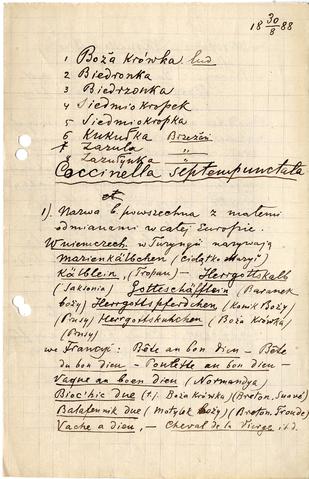 18 30/8 88
1 Boża Krówka lud
2 Biedronka
3 Biedrzonka
4 Siedmiokropek
5 Siedmiokropka
6 Kukułka Brzeżń
7 Zazula "
8 Zazulynka "
Coccinella septempunctata
1). Nazwa b. powszechna z małemi
odmianami w całej Europie.
W niemczech w Turyngii nazywają
marienkälbchen (Cielątko Maryi)
Kälblein, (Tropau) — Herrgottskalb
(Saksonia) Gotteschäflein (Baranek
boży) Herrgottspferdchen (Konik Boży)
(Prusy) Herrgottskuhchen (Boża Krówka)
(Prusy)
we Francyi: Bête au bon dieu — Bête
du bon dieu — Poulette au bon dieu —
Vaque au boen dieu (Normandya)
Bioc'hic doue (t.j. Boża Krówka) (Breton.
Balafennik doue (Motylek boży) (Breton.
Vache a dieu, — Cheval de la Vierge i t.d.